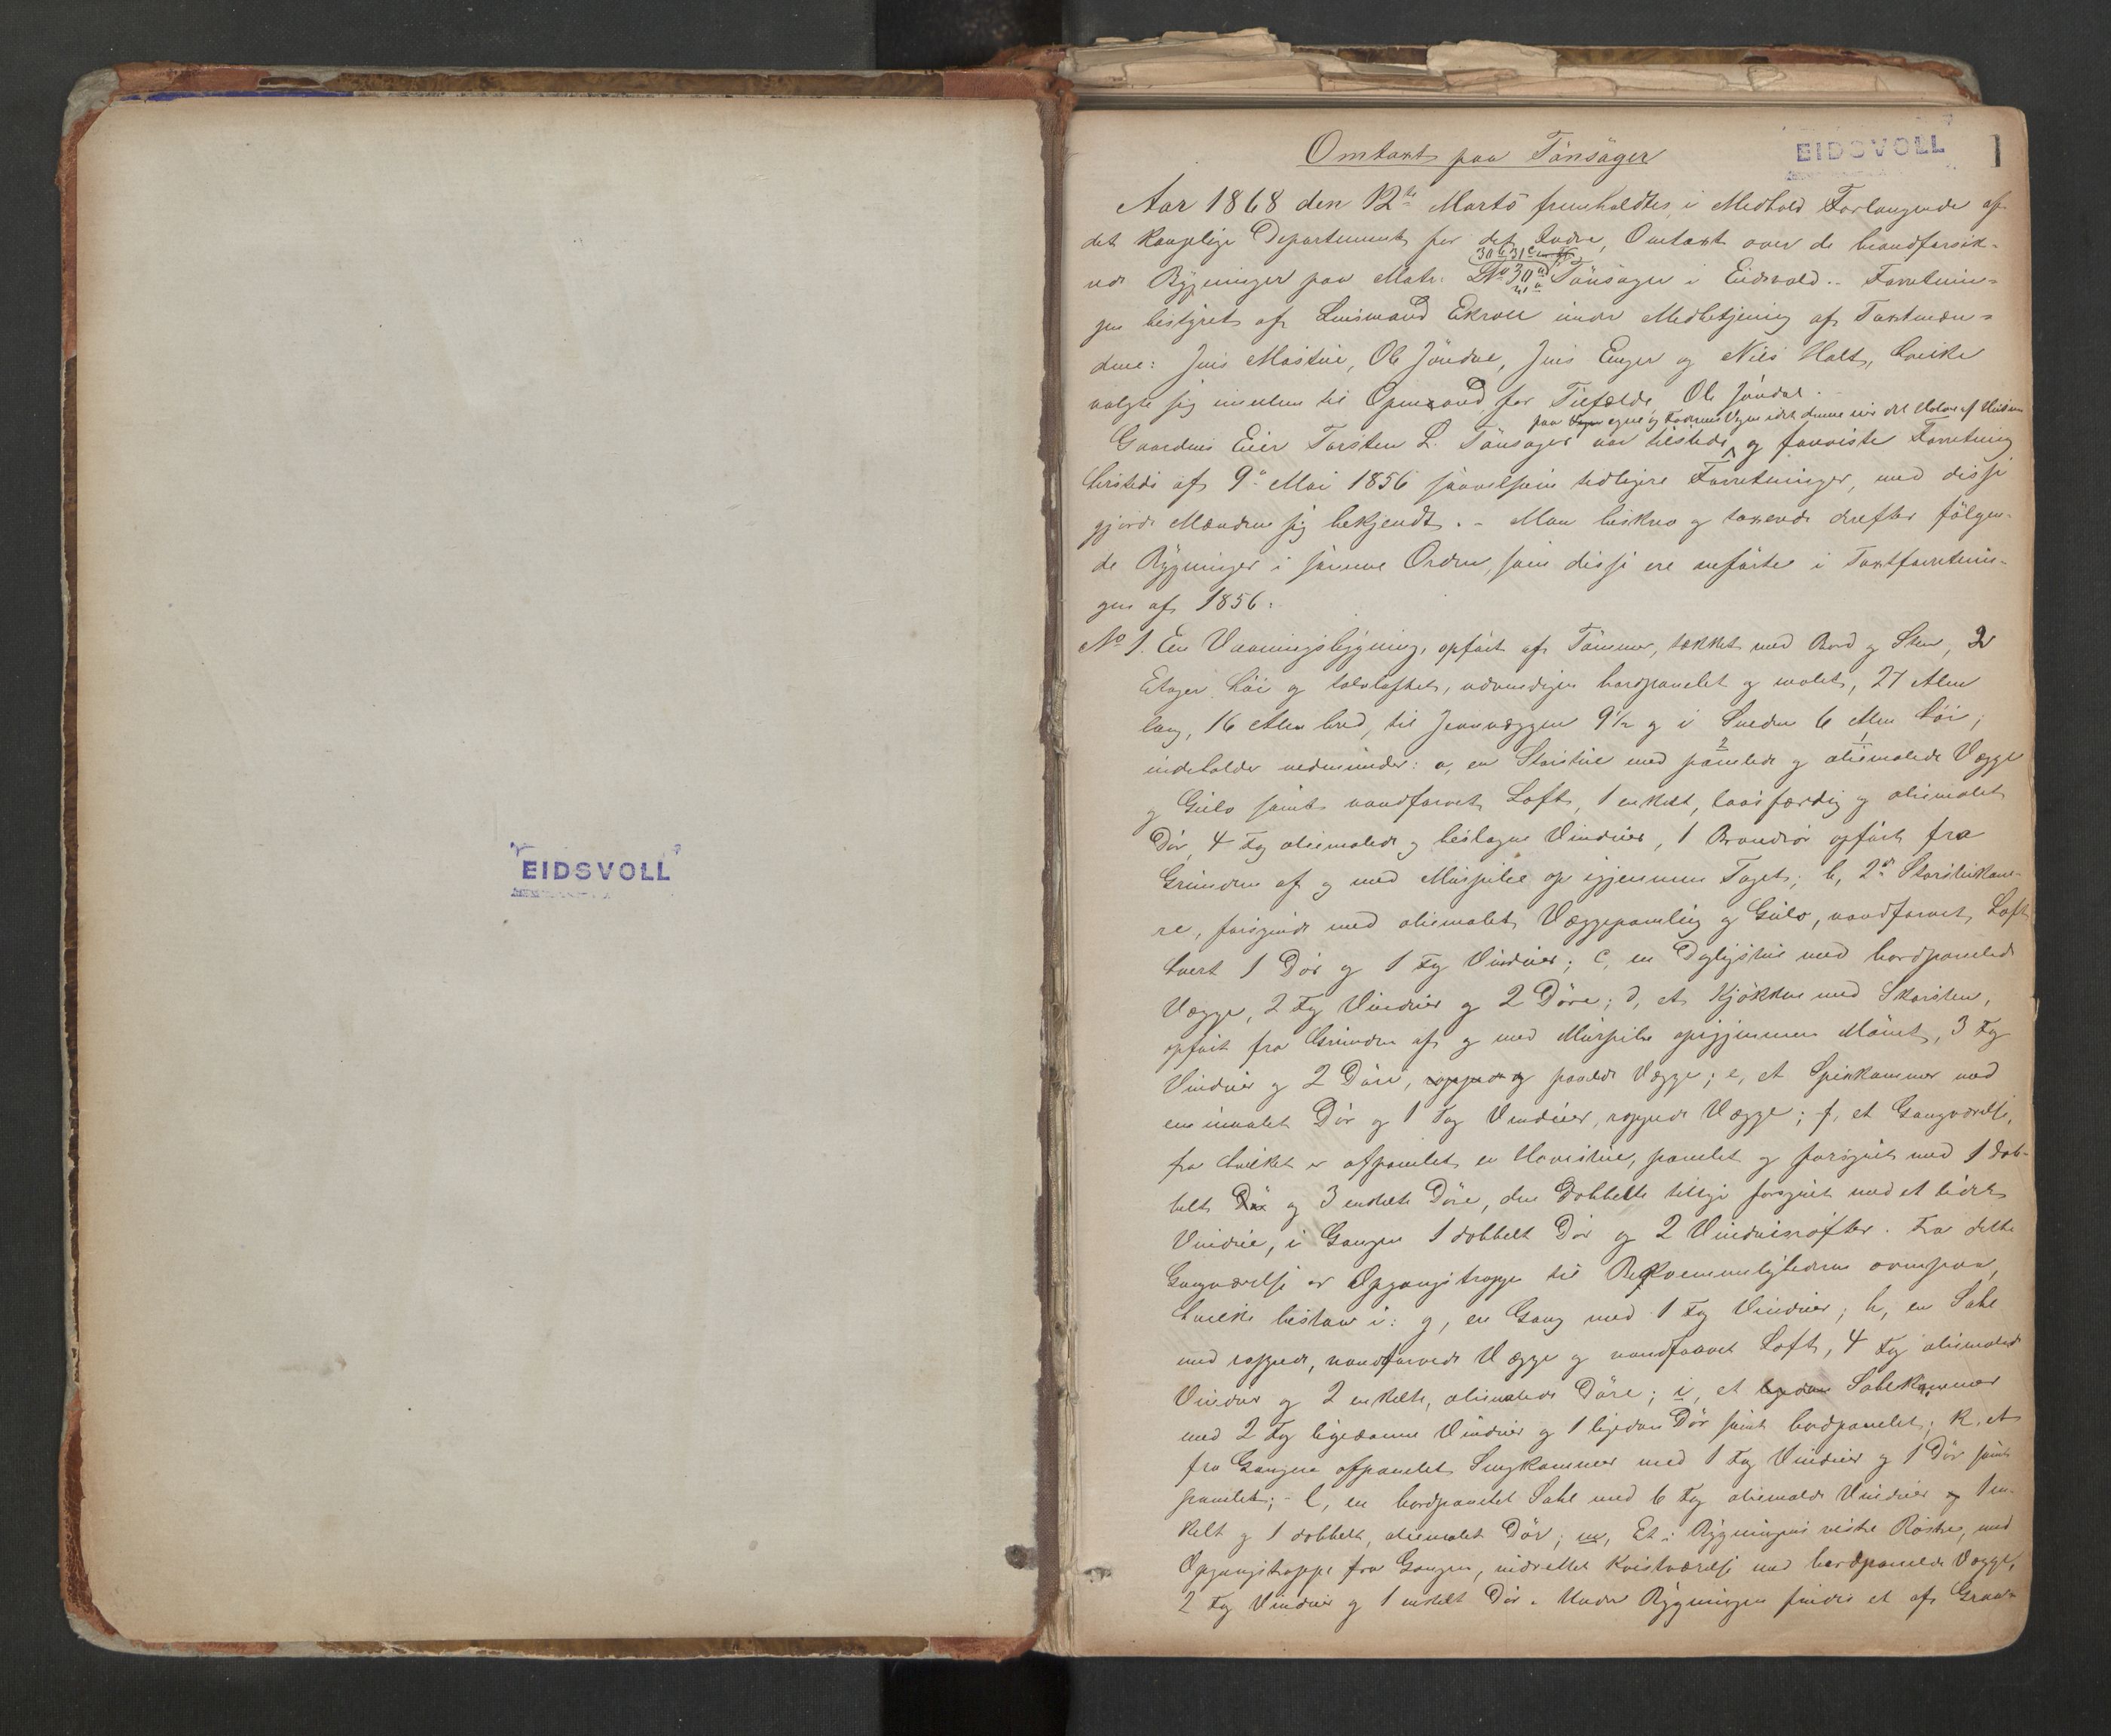 EIDSVOLL
Omtaxt paa Tönsåger
EIDSVOLL
1
Aar 1868 den 12te Marts fremholdtes, i Medhold Forlangende af
det kongelige Departement for det Indre, Omtaxt over de brandforsik-
30 b 31 c
rede Bygninger paa Matr. L No 30 a Tönsager i Eidsvold. Forretnin-
gen bestyret af Lensmand Ekroll under Medbetjening af Taxtmæn-
dene: Jens Mostue, Ole Jöndal, Jens Enger og Niels Holt, hvilke
valgte sig imellem til Opmand for Tilfældet Ole Jöndal.
paa egne og Vegne idet denne
Gaardens Eier Torsten L. Tönsager var tilstede og foreviste Forretning
hersteds af 9de Mai 1856 saavelsom tidligere Forretninger, med disse
gjorde Mændene sig bekjendt. - Man beskrev og taxerede derefter fölgen-
de Bygninger i samme Orden, som disse ere anförte i Taxtforretnin-
gen af 1856:
No 1. En Vaaningsbygning, opfört af Tömmer, tækket med Bord og Sten, 2
Etager höi og tolvloftet, udvendigen bordpanelet og malet, 27 Alen
lang, 16 Alen bred, til Jevnvæggen 9 1/2 og i Sneden 6 Alen höi;
2 1
indeholder nedenunder: a, en Storstue med panelede og oliemalede Vægge
og Gulv samt vandfarvet Loft, 1 enkelt, laasfærdig og oliemalet
Dör, 4 Fag oliemalede og beslagne Vinduer, 1 Brandrör opfört fra
Grunden af og med Murpibe op igjennem Taget; b, 2de Storstuekam-
re, forsynede med oliemalet Væggepaneling og Gulv, vandfarvet Loft
hvert 1 Dör og 1 Fag Vinduer; c, en Dagligstue med bordpanelede
Vægge, 2 Fag Vinduer og 2 Döre; d, et Kjökken med Skorsten,
opfört fra Grunden af og med Murpibe opigjennem Mönet, 3 Fag
Vinduer og 2 Döre, panelede Vægge; e, et Spiskammer med
en umalet Dör og 1 Fag Vinduer, rappede Vægge; f, et Gangværelse,
fra hvilket er afpanelet en Havestue, panelet og forsynet med 1 dob-
belt Dör og 3 enkelte Döre, den Dobbelte tillige forsynet med et lidet
Vindue, i Gangen 1 dobbelt Dör og 2 Vinduesröster. Fra dette
Gangværelse er Opgangstrappe til Beqvemmelighederne ovenpaa,
hvilke bestaar i: g, en Gang med 1 Fag Vinduer; h, en Sahl
med rappede, vandfarvede Vægge og vandfarvet Loft, 4 Fag oliemalede
Vinduer og 2 enkelte, oliemalede Döre; i, et Sahlkammer
med 2 Fag ligedanne Vinduer og 1 ligedan Dör samt bordpanelet; k, et
fra Gangen afpanelet Sengkammer med 1 Fag Vinduer og 1 Dör samt
panelet; - l, en bordpanelet Sahl med 6 Fag oliemalede Vinduer og 1 en-
kelt og 1 dobbelt, oliemalet Dör; m, Et i Bygningens vestre Röstre, med
Opgangstrappe fra Gangen, indrettet Kvistværelse med bordpanelede Vægge,
2 Fag Vinduer og 1 enkelt Dör. Under Bygningen findes et af Graa-